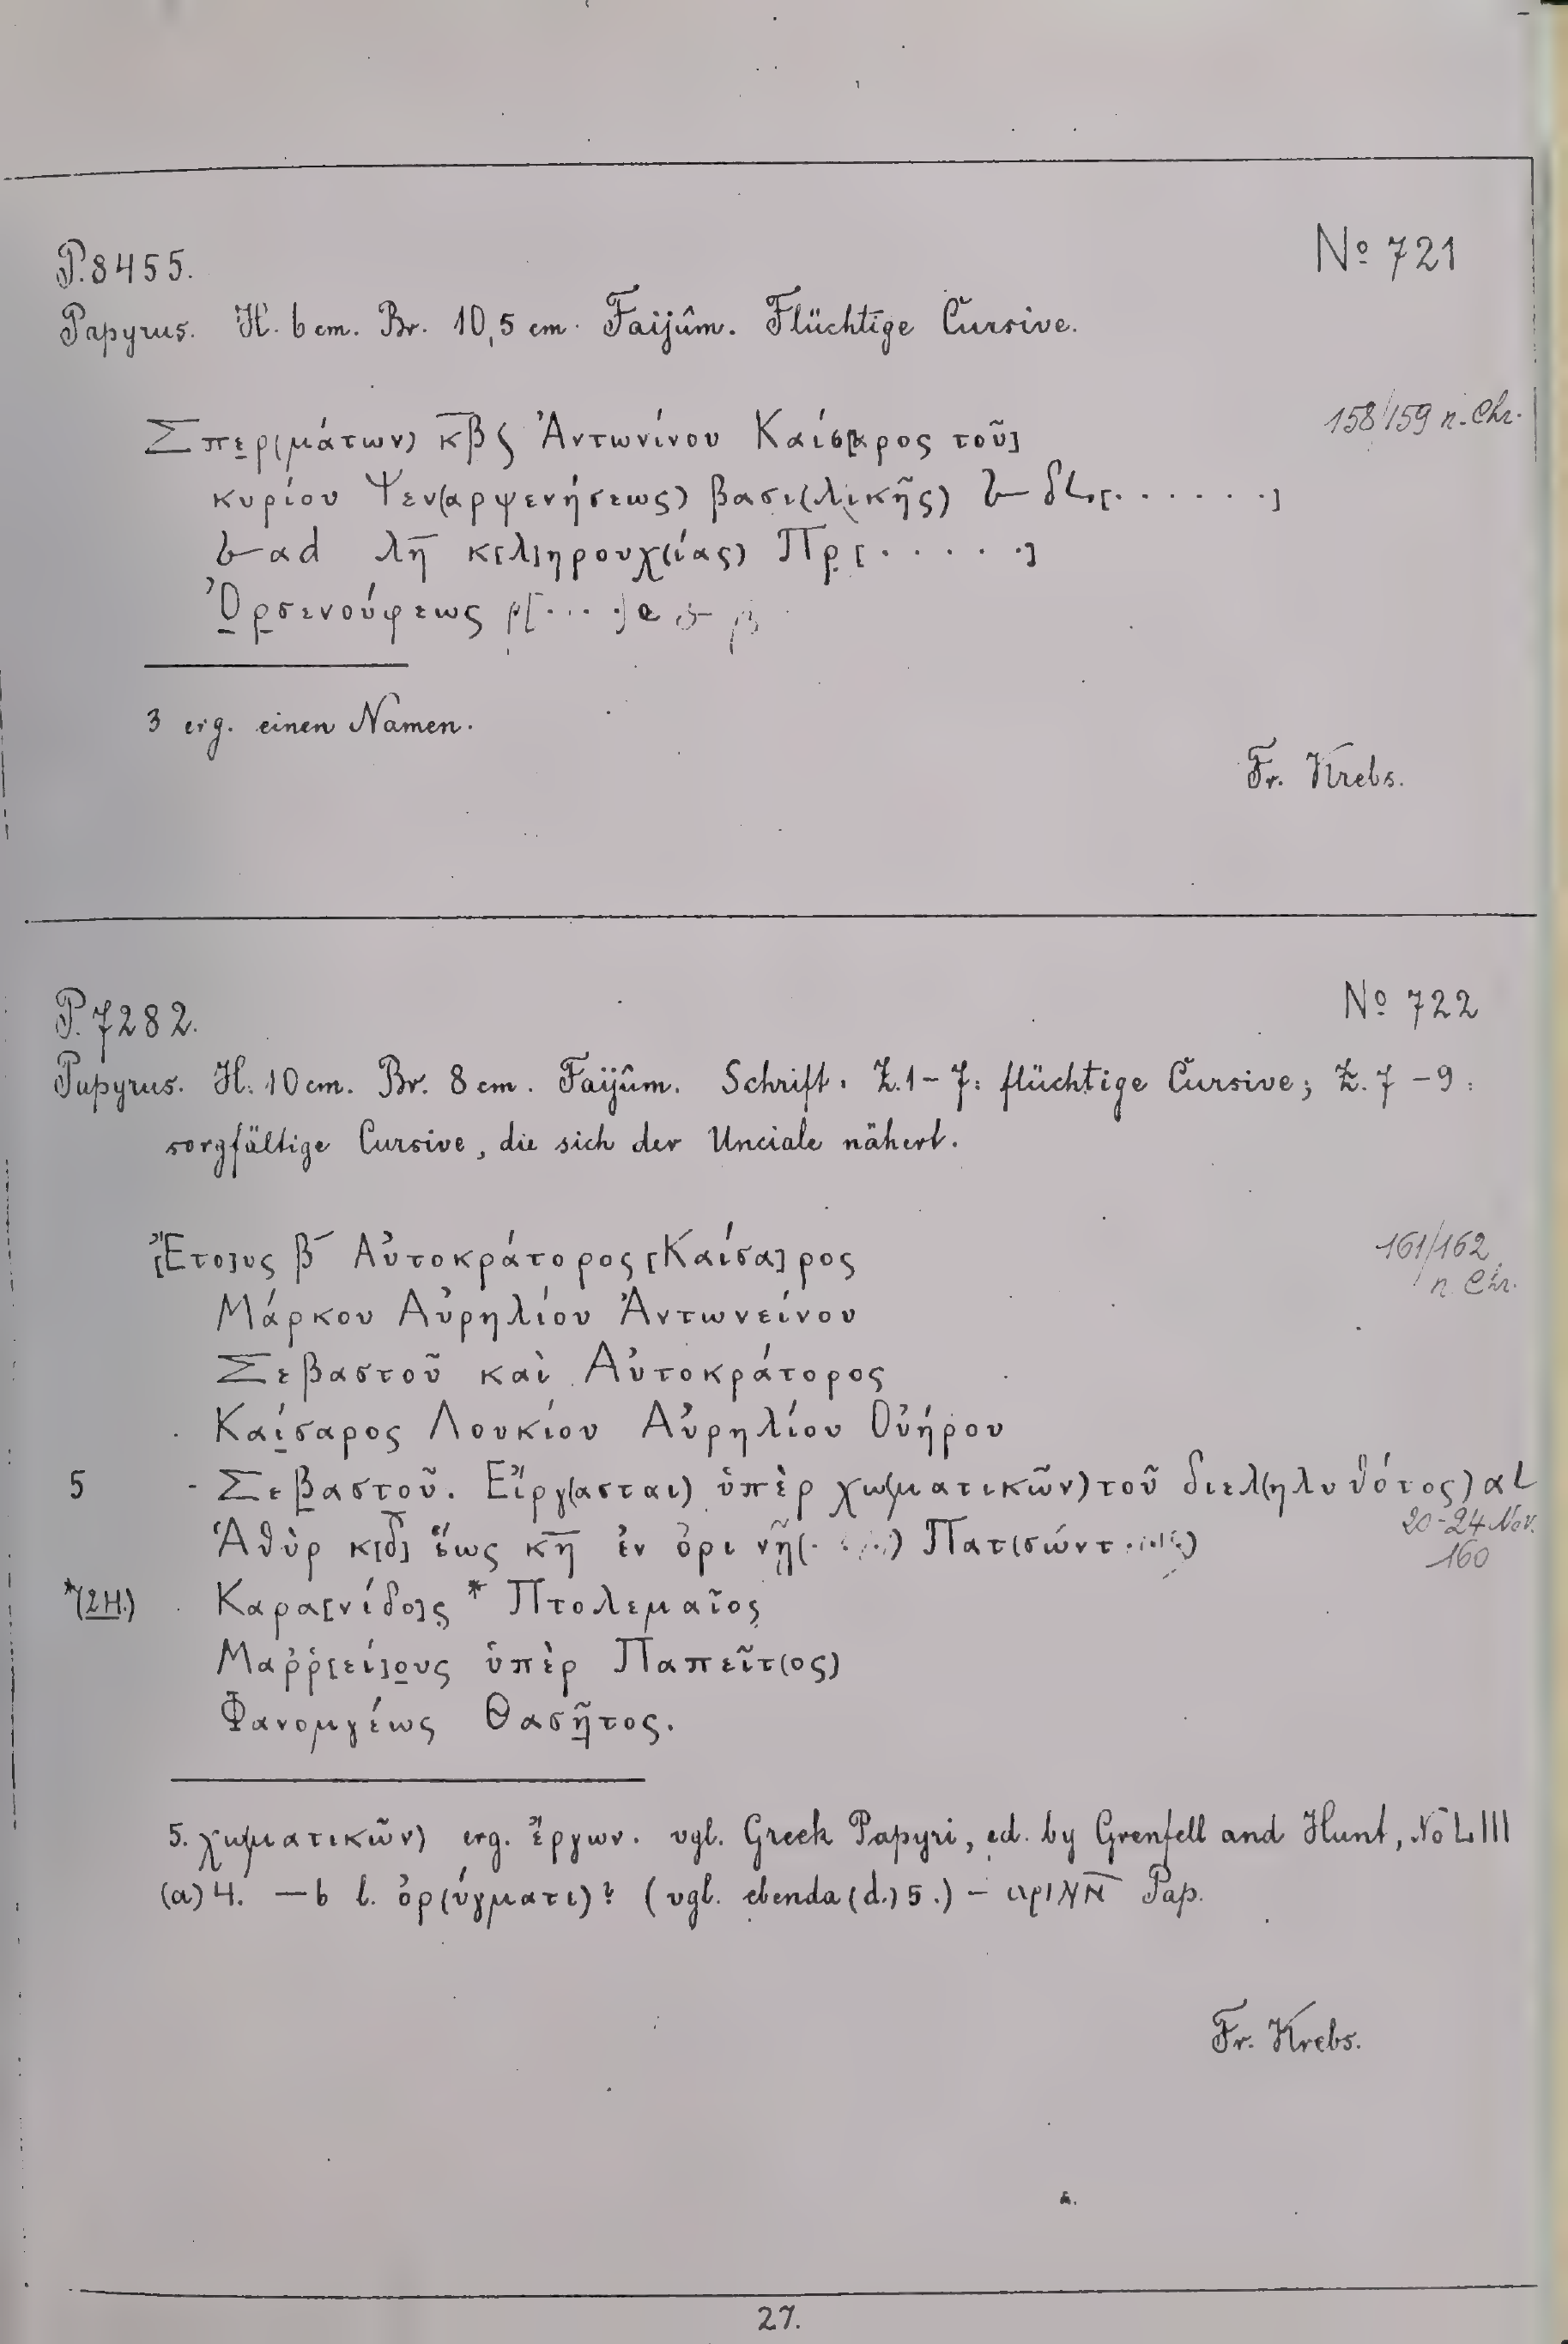 P. 8455.
No 721
Papyrus. H. 6 cm. Br. 10,5 cm. Faijûm. Flüchtige Cursive.
158/159 n. Chr.
Σπερ(μάτων) κ̅β̅ ϛ Ἀντωνίνου Καίσ[αρος τοῦ]
κυρίου Ψεν(αρψενήσεως) βασι(λικῆς) 𐅵 δL.[. . . . . . .]
ad λη̅ κ[λ]ηρουχ(ίας) Πρ[. . . . . .]
Ὀρσενούφεως ρ[. . . .] β
3 erg. einen Namen.
Fr. Krebs.
P. 7282.
No 722
Papyrus. H. 10 cm. Br. 8 cm. Faijûm. Schrift. Z. 1–7: flüchtige Cursive; Z. 7–9:
sorgfältige Cursive, die sich der Unciale nähert.
[Ἔτο]υς β̅ Αὐτοκράτορος [Καίσα]ρος
161/162 n. Chr.
Μάρκου Αὐρηλίου Ἀντωνείνου
Σεβαστοῦ καὶ Αὐτοκράτορος
Καίσαρος Λουκίου Αὐρηλίου Οὐήρου
5 Σεβαστοῦ. Εἴργ(ασται) ὑπὲρ χω(ματικῶν) τοῦ διελ(ηλυθότος) αL
Ἁθὺρ κ[δ̅] ἕως κη̅ ἐν ὀρι νῃ(. . . .) Πατ(σώντ. . . .)
20–24 Nov. 160
*(2H.) Καρα[νίδο]ς * Πτολεμαῖος
Μαρρ[εί]ους ὑπὲρ Παπεῖτ(ος)
Φανομγέως Θασῆτος.
5. χω(ματικῶν) erg. ἔργων. vgl. Greek Papyri, ed. by Grenfell and Hunt, No LIII
(a) 4. — 6 l. ὀρ(ύγματι)? (vgl. ebenda (d.) 5.) – Pap.
Fr. Krebs.
27.